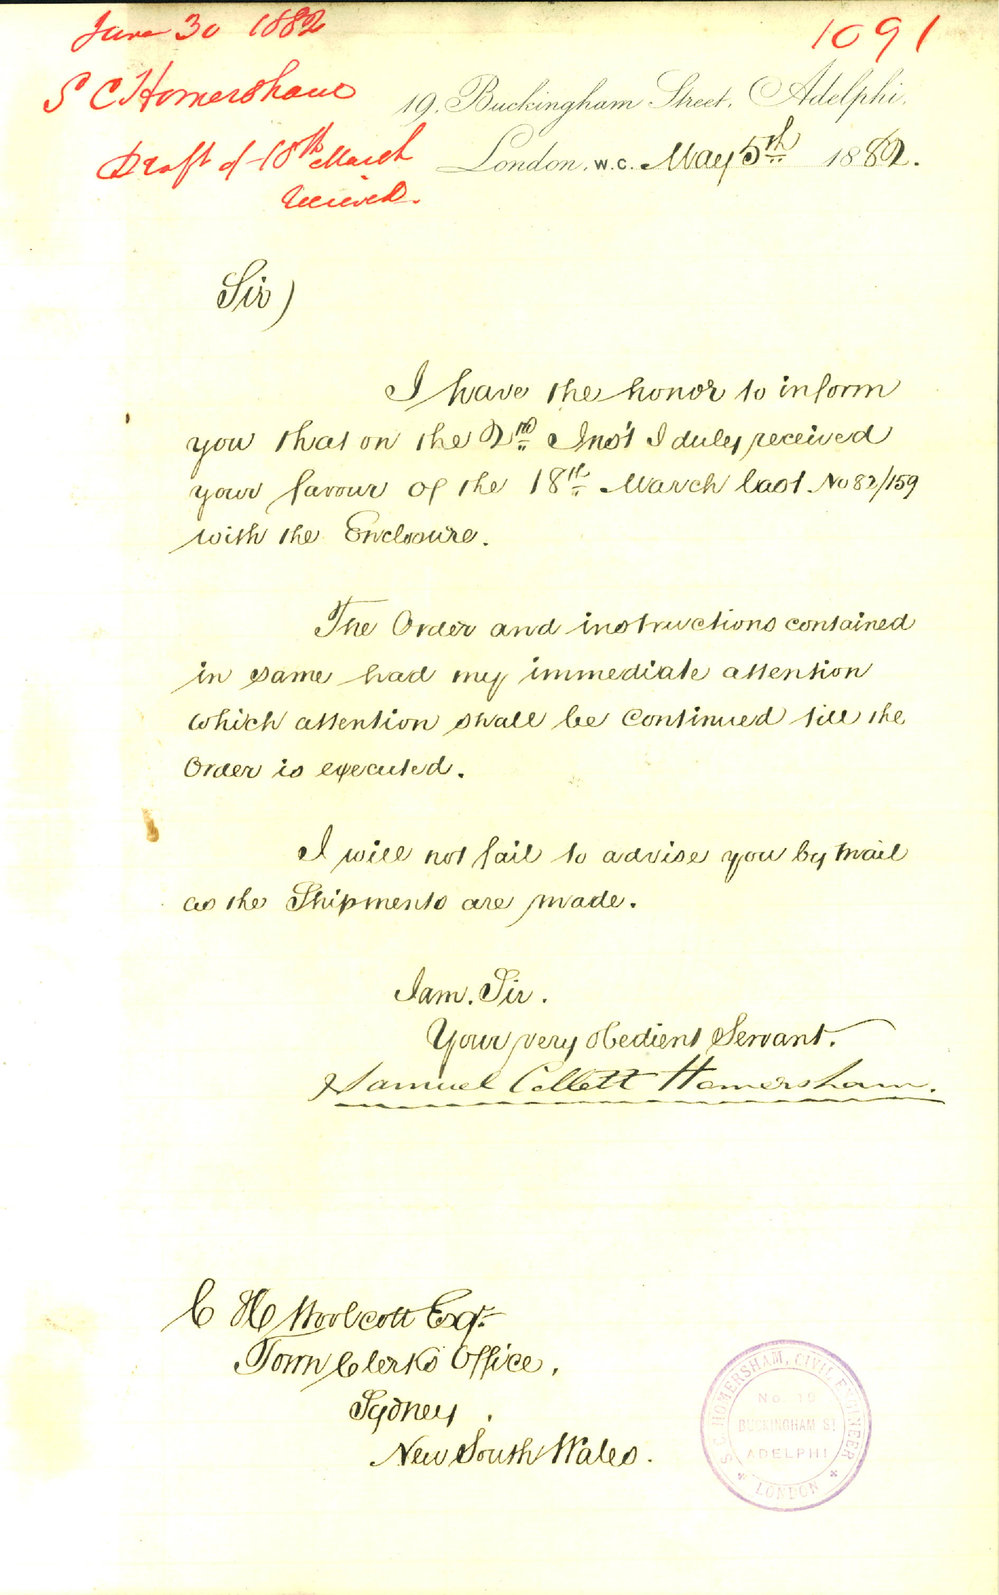 June 30 1882
1091
S C Homersham
Draft of 18th March
received.
19, Buckingham Street, Adelphi,
London, W.C. May 5th 1882.
Sir)
I have the honor to inform
you that on the 2nd Inst I duly received
your favour of the 18th March last No 82/159
with the Enclosure.
The Order and instructions contained
in same had my immediate attention
which attention shall be continued till the
Order is executed.
I will not fail to advise you by Mail
as the Shipments are made.
I am, Sir.
Your very obedient Servant.
Samuel Collett Homersham.
C H Woolcott Esqr.
Town Clerks Office,
Sydney,
New South Wales.
S. C. HOMERSHAM, CIVIL ENGINEER
No. 19
BUCKINGHAM ST
ADELPHI
LONDON